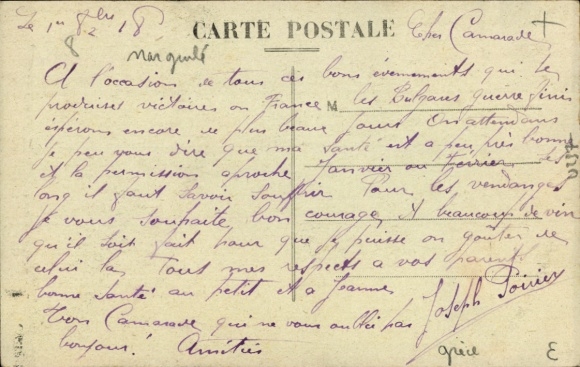 Le 1er 8bre 18
CARTE POSTALE
Cher Camarade
A l'occasion de tous ces bons évenements qui se
produises victoires en France M les Bulgares guerre finis
espérons encore de plus beaux jours On attendans
je peu vous dire que ma santé est a peu près bonne
et la permission aproche Janvier ou fevrier
long il faut savoir souffrir Pour les vendanges
je vous souhaite bon courage, et beaucoup de vin
qu'il soit fait pour que je puisse en goûter de
celui la Tous mes respects a vos parents
bonne santé au petit et a Jeanne
Joseph Poirier
Votre Camarade qui ne vous oublie pas
bonjour! Amitiés
grèce
E